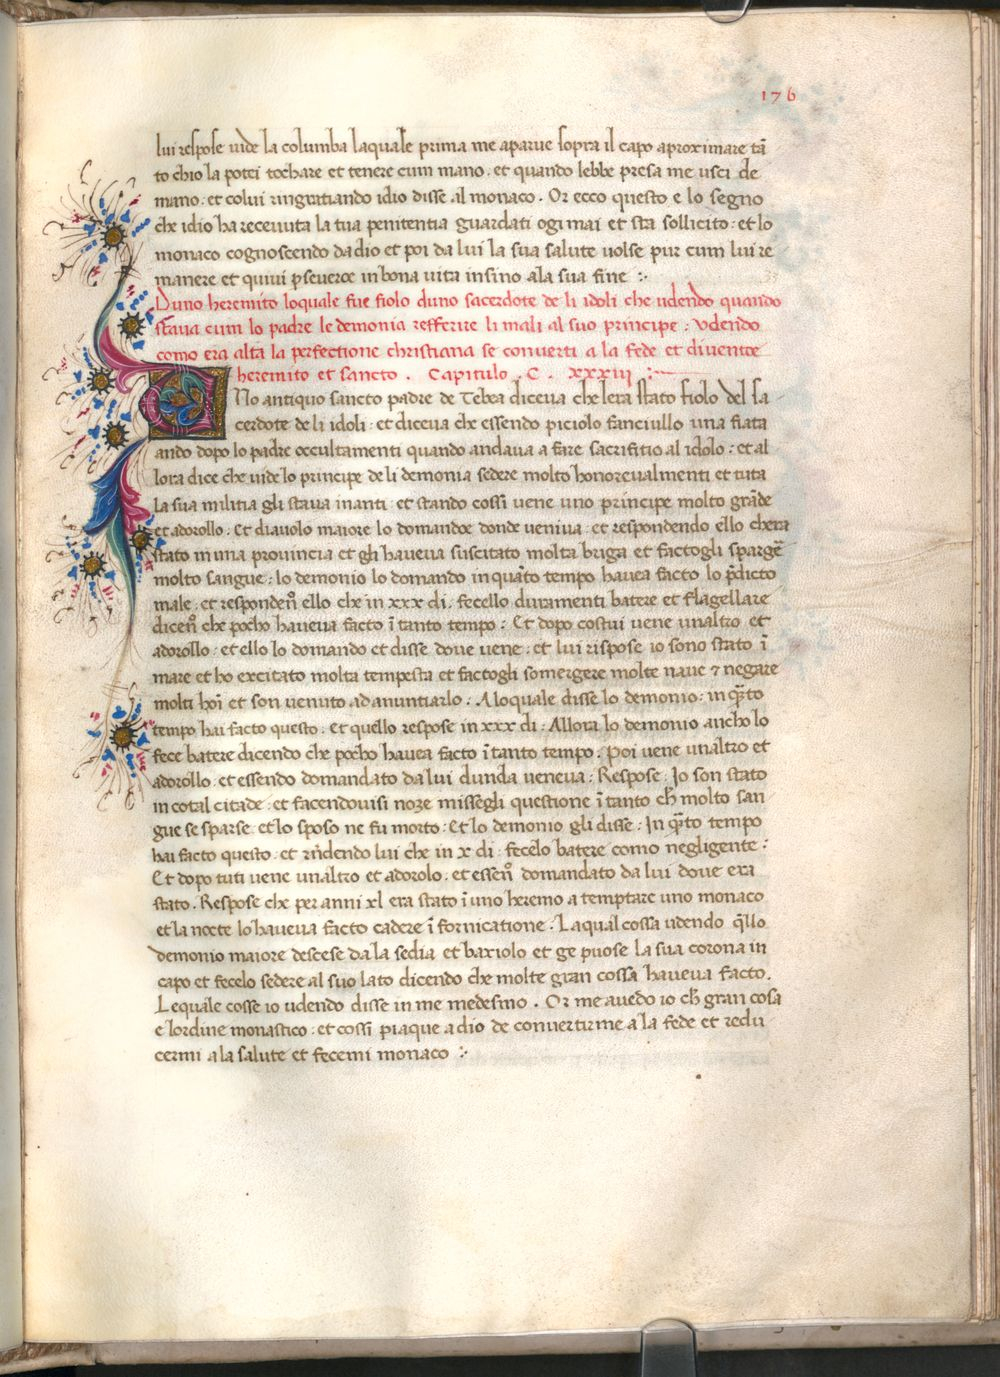 176
lui respose uide la columba laquale prima me aparue sopra il capo aproximare tā
to chio la potei tochare et tenere cum mano · et quando lebbe presa me usci de
mano · et colui ringratiando idio disse al monaco . Or ecco questo e lo segno
che idio ha receuuta la tua penitentia guardati ogi mai et sta sollicito · et lo
monaco cognoscendo da dio et poi da lui la sua salute uolse pur cum lui re
manere et quiui pseueroe in bona uita insino a la sua fine :·
Duno heremito loquale fue fiolo duno sacerdote de li idoli che udendo quando
staua cum lo padre le demonia refferire li mali al suo principe : Vdendo
como era alta la perfectione christiana se conuerti a la fede et diuentoe
heremito et sancto . Capitulo . C . xxxiij :·
UNo antiquo sancto padre de Tebea diceua che lera stato fiolo del sa
cerdote de li idoli · et diceua che essendo piciolo fanciullo una fiata
ando dopo lo padre occultamenti quando andaua a fare sacrifitio al idolo : et al
lora dice che uide lo principe de li demonia sedere molto honoreualmenti et tuta
la sua militia gli staua inanti · et stando cossi uene uno principe molto grāde
et adorollo · Et diauolo maiore lo domandoe donde ueniua · et respondendo ello chera
stato in una prouincia et gli haueua suscitato molta briga et factogli spargē
molto sangue · lo demonio lo domando in quāto tempo hauea facto lo p̄dicto
male · et responden̄ ello che in xxx di · fecello duramenti batere et flagellare
dicen̄ che pocho haueua facto ī tanto tempo : Et dopo costui uene unaltro et
adorollo · et ello lo domando et disse doue uene · et lui rispose io sono stato ī
mare et ho excitato molta tempesta et factogli somergere molte naue ⁊ negare
molti hoī et son uenuto ad anuntiarlo · Aloquale disse lo demonio · in q̄to
tempo hai facto questo · Et quello respose in xxx di · Allora lo demonio ancho lo
fece batere dicendo che pocho hauea facto ī tanto tempo . Poi uene unaltro et
adorollo · et essendo domandato da lui dunda ueneua · Respose · Jo son stato
in cotal citade · et facendouisi noze missegli questione ī tanto ch̄ molto san
gue se sparse · et lo sposo ne fu morto · Et lo demonio gli disse · In q̄to tempo
hai facto questo · et rn̄dendo lui che in x di · fecelo batere como negligente :
Et dopo tuti uene unaltro et adorolo · et essen̄ domandato da lui doue era
stato . Respose che per anni xl era stato ī uno heremo a temptare uno monaco
et la nocte lo haueua facto cadere ī fornicatione · La qual cossa udendo q̄llo
demonio maiore descese da la sedia et baxiolo et ge puose la sua corona in
capo et fecelo sedere al suo lato dicendo che molte gran cossa haueua facto .
Lequale cosse io udendo disse in me medesimo . Or me auedo io ch̄ gran cosa
e lordine monastico · et cossi piaque a dio de conuertirme a la fede et redu
cermi a la salute et fecemi monaco :·